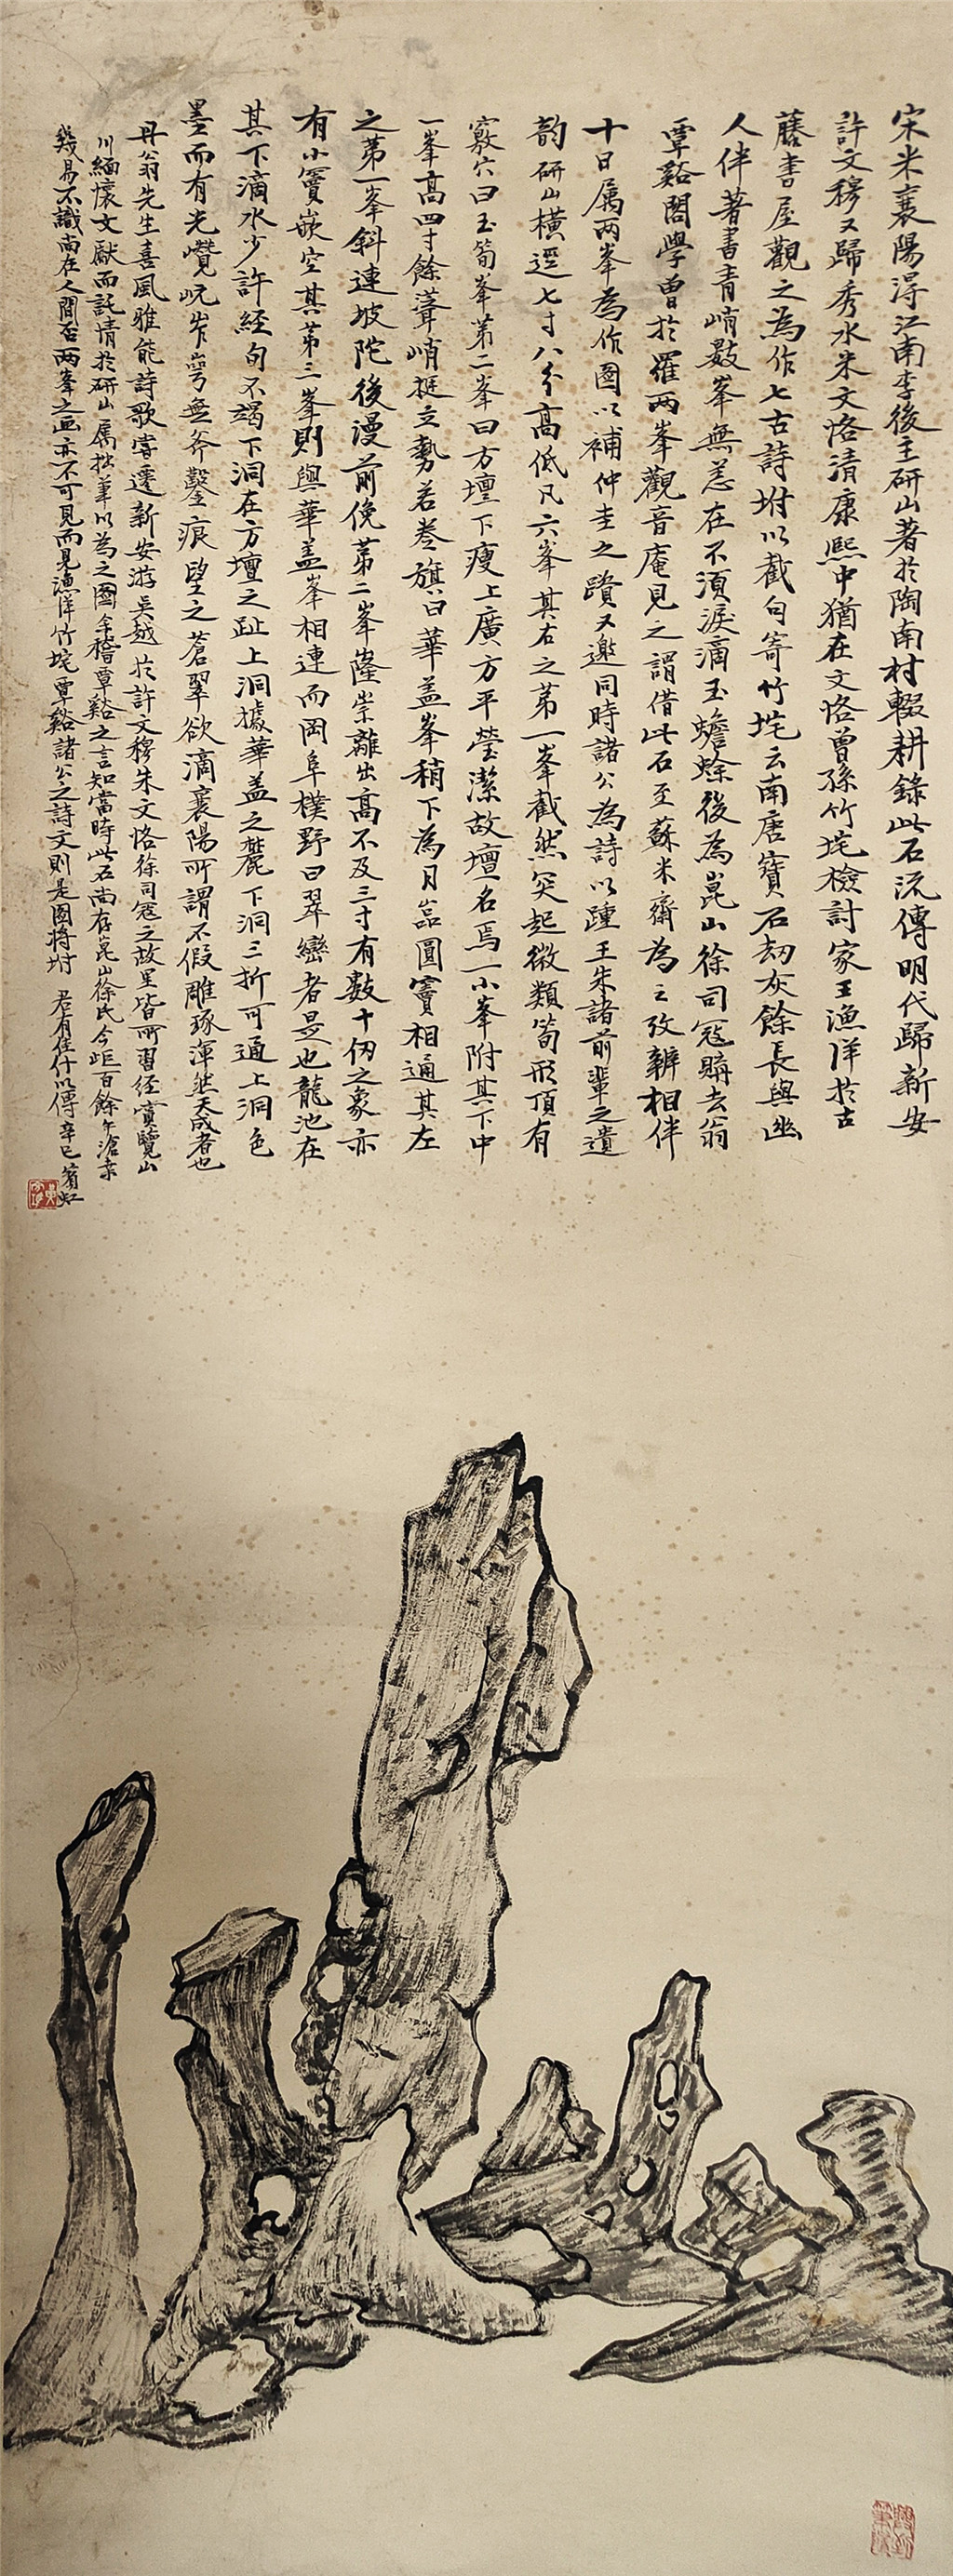 宋米襄陽得江南李後主研山著於陶南村輟耕錄此石流傳明代歸新安
許文穆又歸秀水朱文恪清康熙中猶在文恪曾孫竹垞檢討家王漁洋於古
藤書屋觀之為作七古詩坿以截句寄竹垞云南唐寶石劫灰餘長與幽
人伴著書青峭數峯無恙在不須淚滴玉蟾蜍後為崑山徐司寇購去翁
覃谿閣學曾於羅兩峯觀音庵見之謂借此石至蘇米齋為之攷辨相伴
十日属兩峯為作圖以補仲圭之蹟又邀同時諸公為詩以踵王朱諸前輩之遺
韵研山橫逕七寸八分高低凡六峯其右之苐一峯截然突起微類筍形頂有
竅穴曰玉筍峯苐二峯曰方壇下瘦上廣方平瑩潔故壇名焉一小峯附其下中
一峯高四寸餘聳峭挺立勢若卷旗曰華盖峯稍下為月嵓圓竇相通其左
之苐一峯斜連坡陀後漫前俛苐二峯隆崇離出高不及三寸有數十仞之象亦
有小竇嵌空其苐三峯則與華盖峯相連而岡阜樸野曰翠巒者是也龍池在
其下滴水少許経旬不竭下洞在方壇之趾上洞據華盖之麓下洞三折可通上洞色
墨而有光巑岏岝崿無斧鑿痕望之蒼翠欲滴襄陽所謂不假雕琢渾然天成者也
丹翁先生喜風雅能詩歌嘗遷新安游吳越於許文穆朱文恪徐司寇之故里皆所習経賞覽山
川緬懷文獻而託情於研山属拙筆以為之圖余稽覃谿之言知當時此石尚存崑山徐氏今歫百餘年滄桑
幾易不識尚在人間否兩峯之畫亦不可見而見漁洋竹垞覃谿諸公之詩文則是圖將坿 君有佳什以傳 辛巳 賓虹